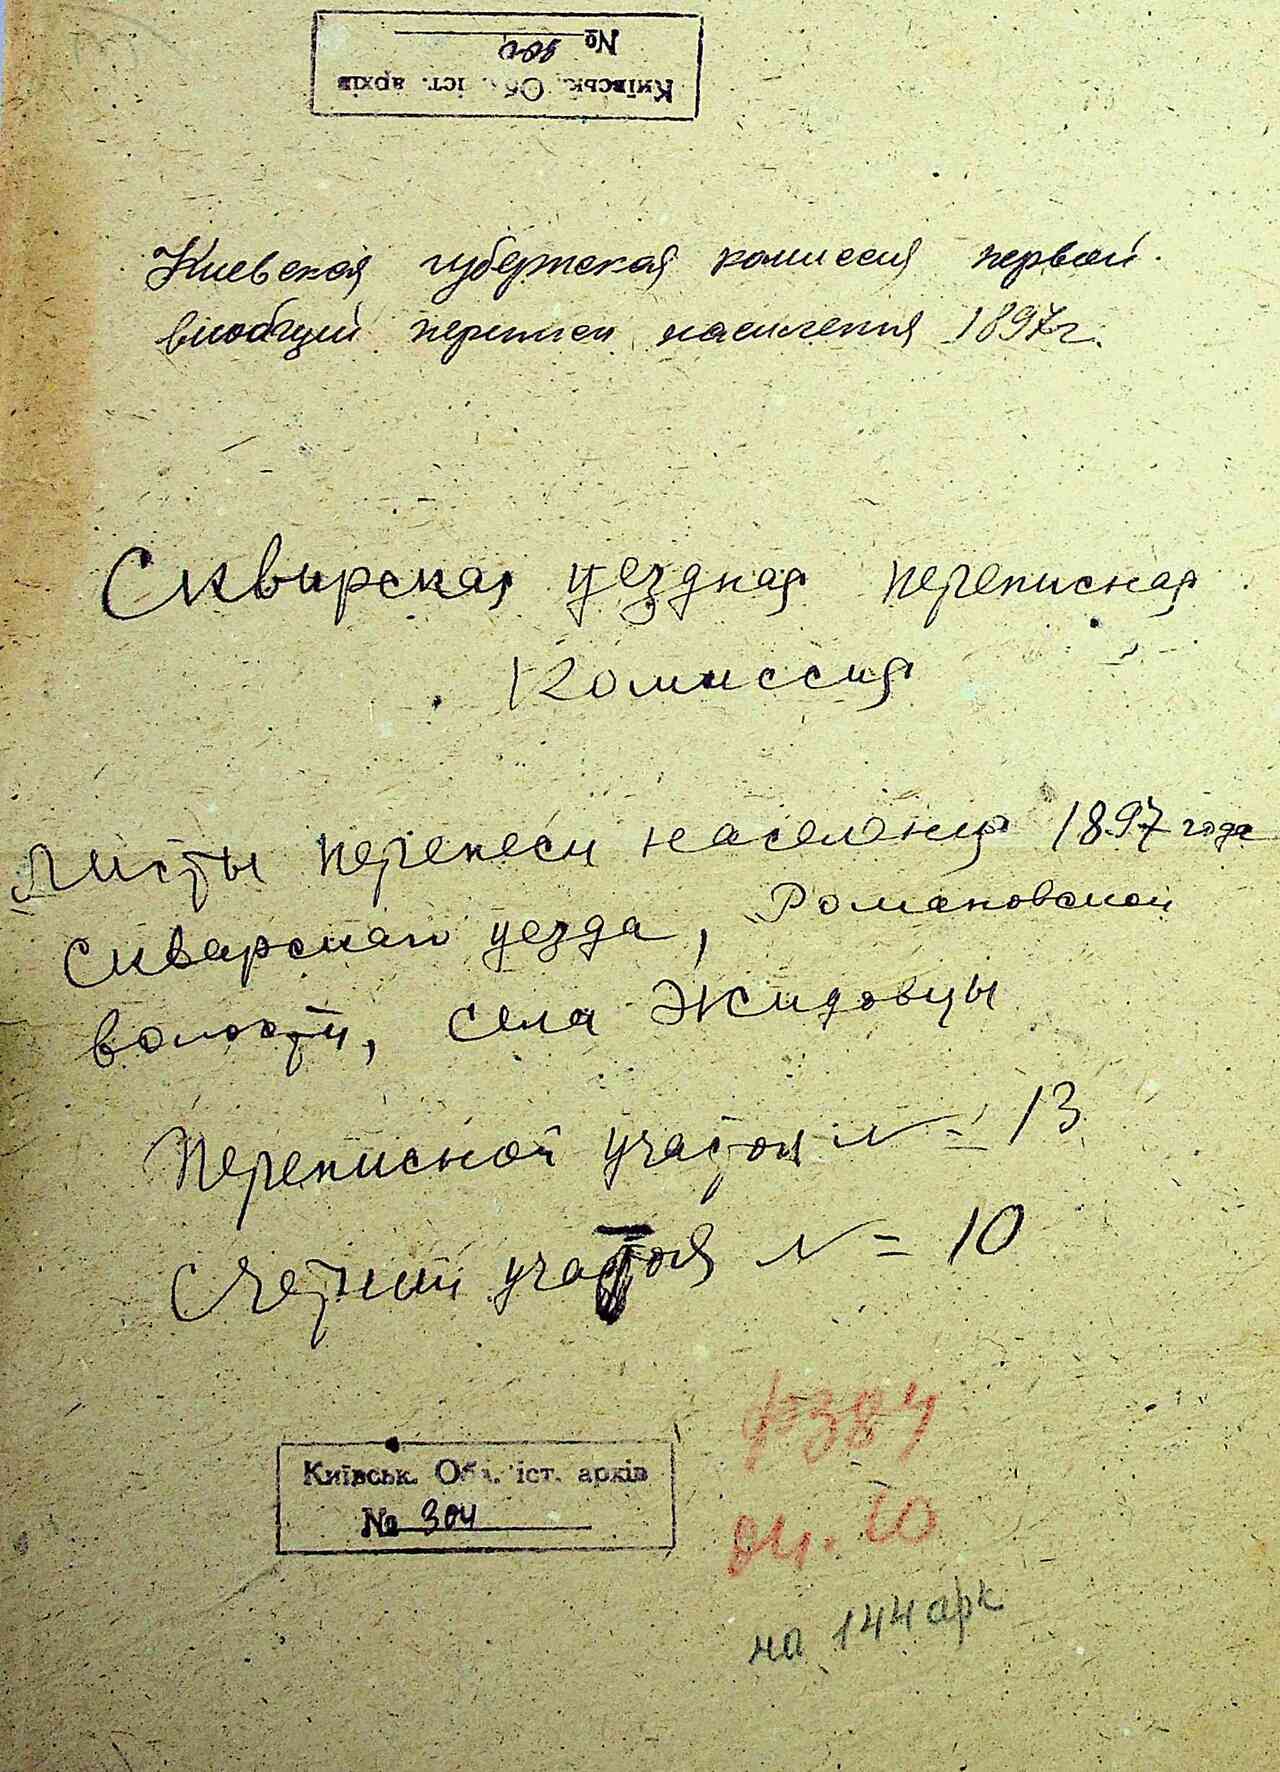 Київськ. Обл. іст. архів
№ 304
Киевская губернская комиссия первой
всиобщий переписи населения 1897г.
Сквирская уездная переписная
Комиссия
Листы переписи населения 1897 года
Сквирскаго уезда, Романовской
волости, села Жидовцы
Переписной участок № 13
Счетний участок № 10
Київськ. Обл. іст. архів
№ 304
ф384
оп. 10
на 144 арк